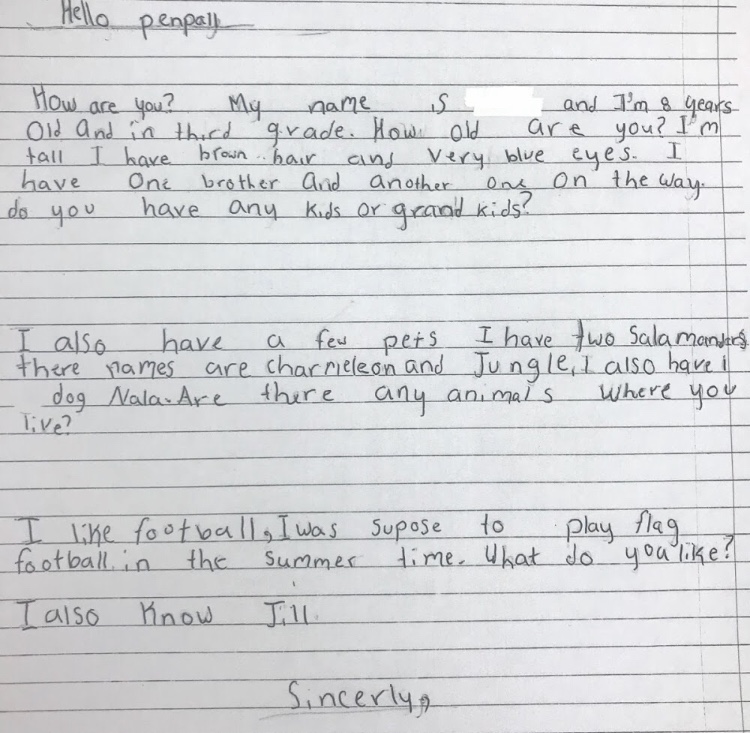 Hello penpall
How are you? My name is and I'm 8 years
Old and in third grade. How old are you? I'm
tall I have brown hair and very blue eyes. I
have One brother And another one On the way.
do you have any kids or grand kids?
I also have a few pets I have two Salamanders
there names are charmeleon and Jungle, I also have 1
dog Nala. Are there any animals where you
live?
I like football, I was supose to play flag
football in the summer time. What do you like?
I also Know Jill
Sincerly,